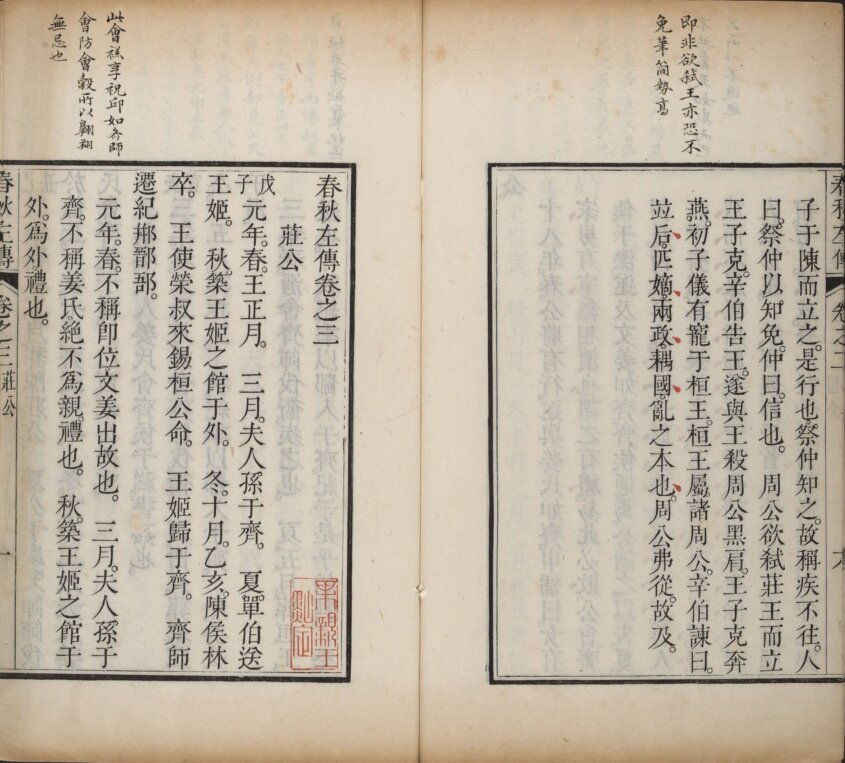 即非欲弑王亦恐不
免筆簡勢高
子于陳而立之。是行也。祭仲知之。故稱疾不往。人
曰。祭仲以知免。仲曰。信也。　周公欲弑莊王而立
王子克。辛伯告王。遂與王殺周公黑肩。王子克奔
燕。初子儀有寵于桓王。桓王屬諸周公。辛伯諫曰。
竝后。匹嫡。兩政。耦國。亂之本也。周公弗從。故及。
春秋左傳
卷之二
此會禚享祝邱如齊師
會防會穀所以翱翔
無忌也
春秋左傳卷之三
莊公
戊子
元年。春。王正月。　三月。夫人孫于齊。　夏。單伯送
王姬。　秋。築王姬之館于外。　冬。十月。乙亥。陳侯林
卒。　王使榮叔來錫桓公命。　王姬歸于齊。　齊師
遷紀郱鄑郚。
元年。春。不稱卽位。文姜出故也。　三月。夫人孫于
齊。不稱姜氏。絕不爲親。禮也。　秋。築王姬之館于
外。爲外禮也。
春秋左傳
卷之三 莊公
一